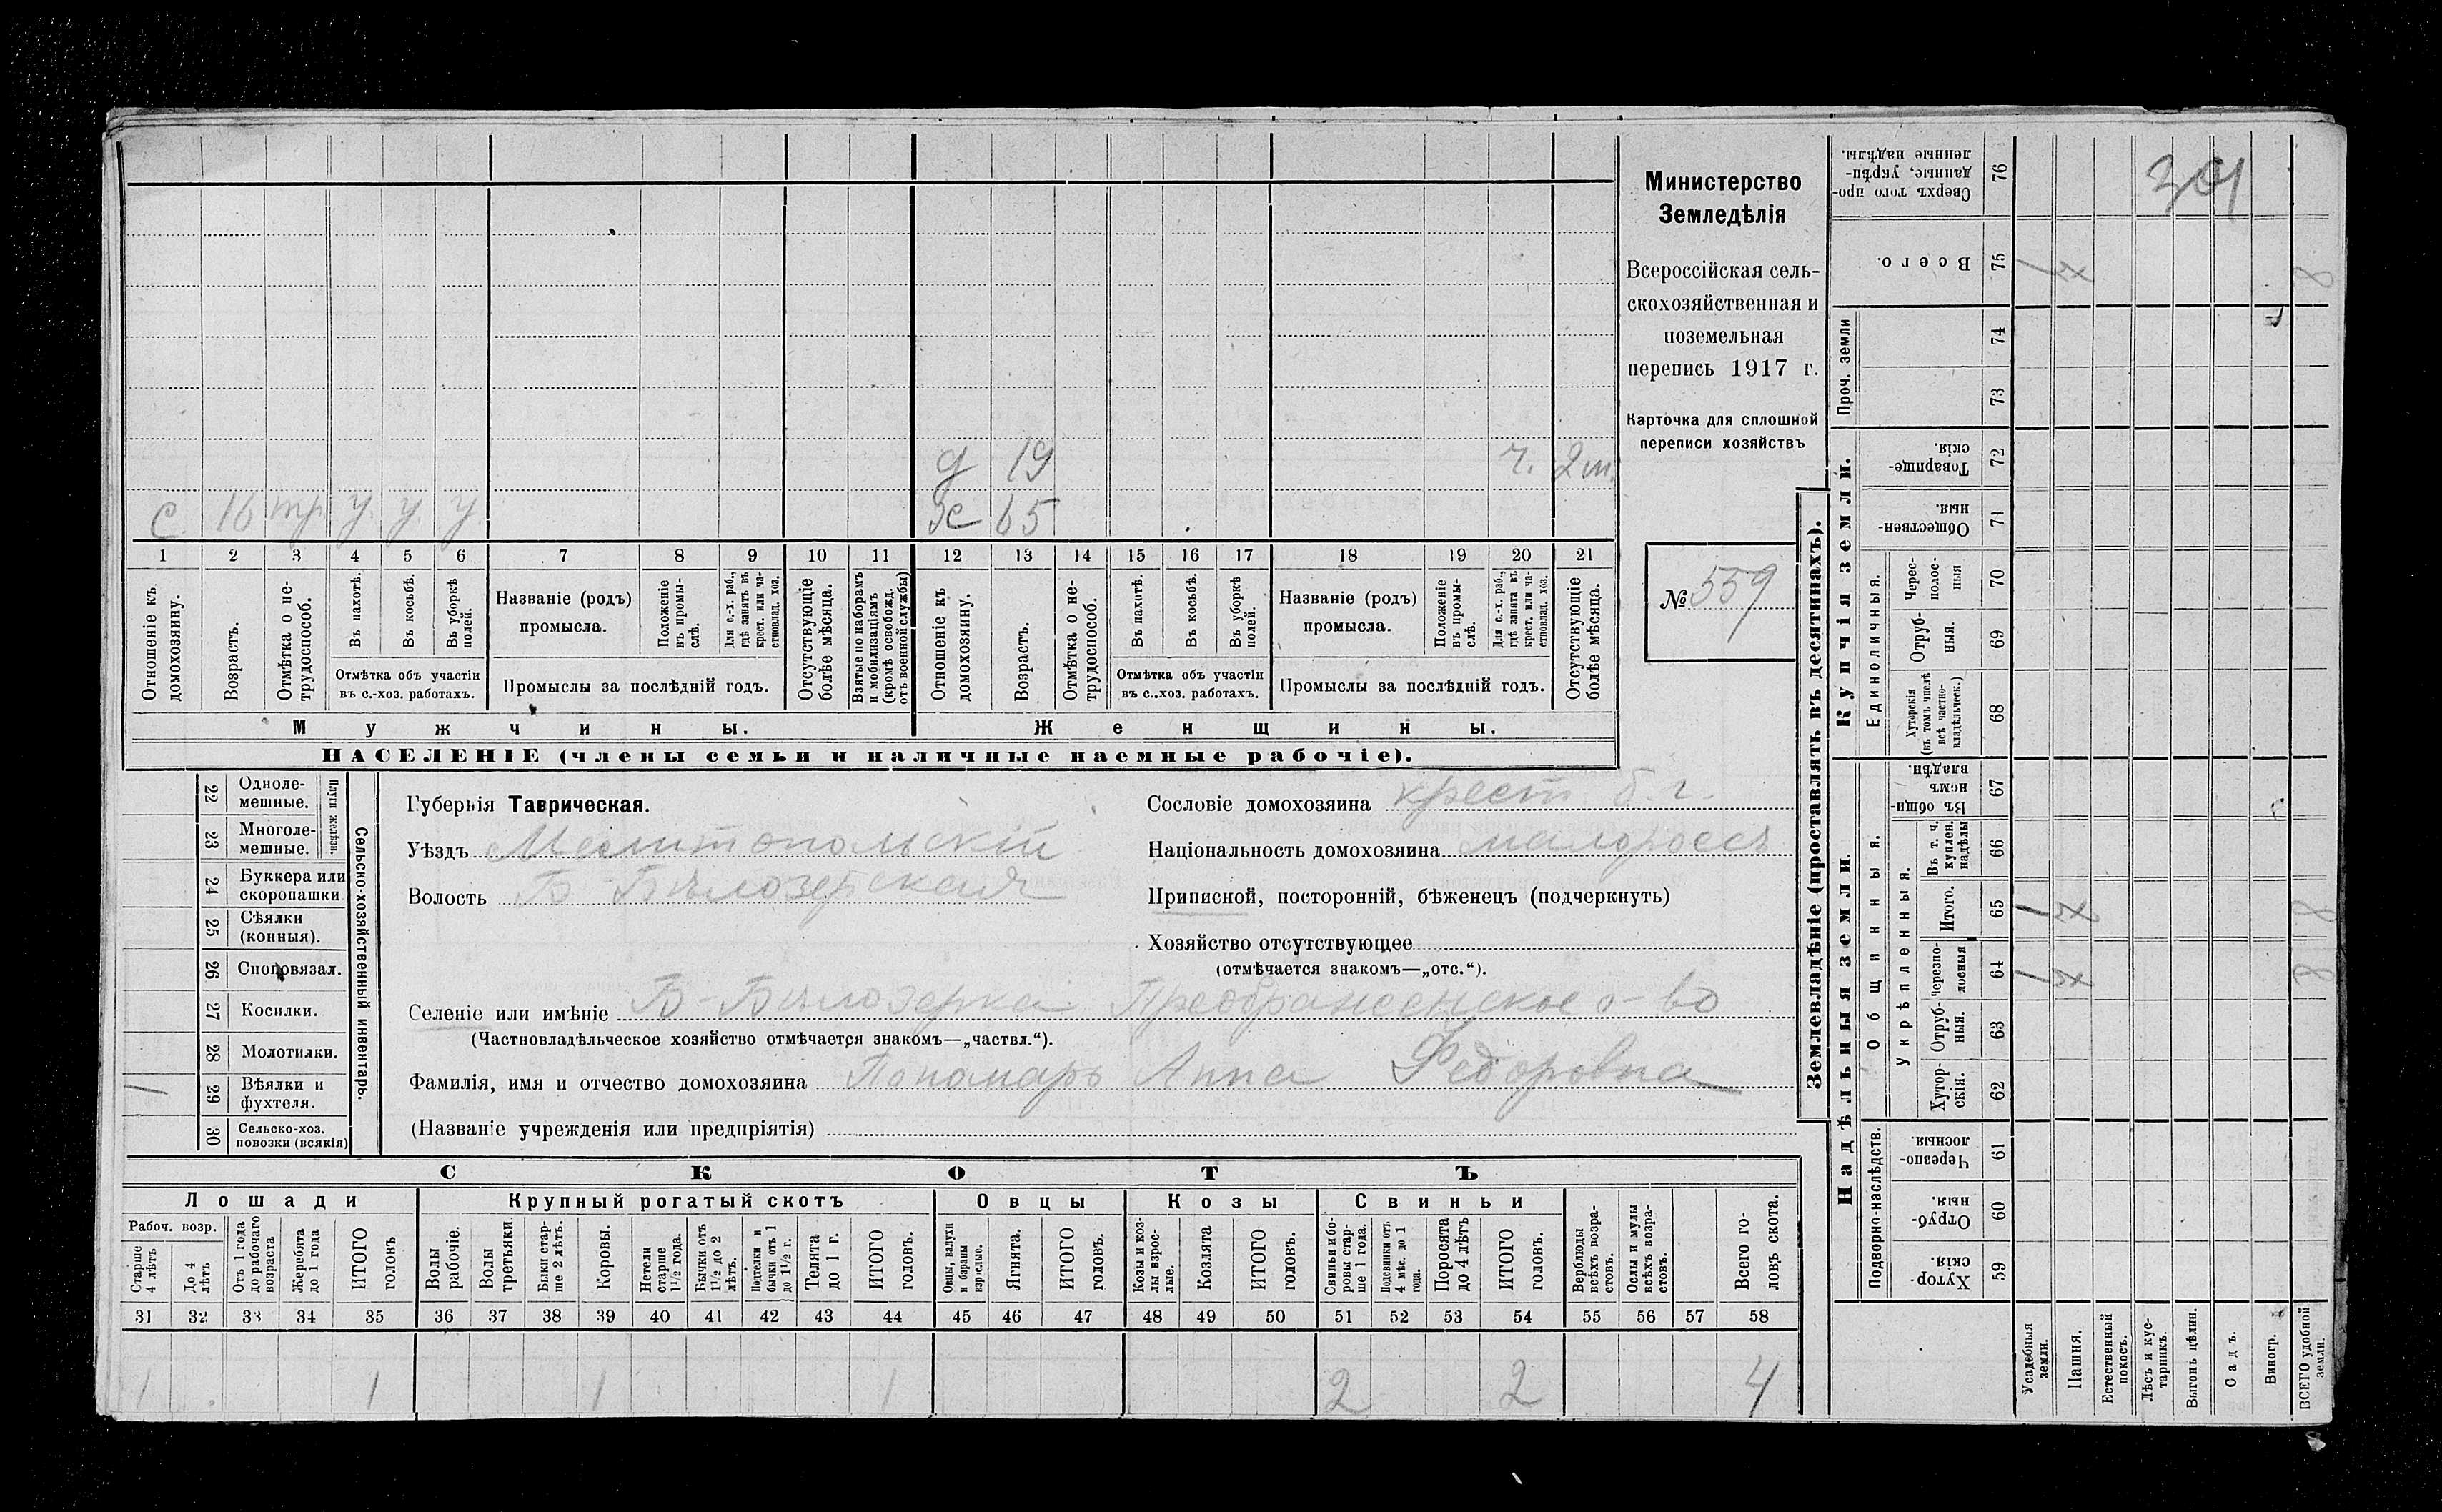 301
Министерство
Земледѣлія
Всероссійская сель-
скохозяйственная и
поземельная
перепись 1917 г.
Карточка для сплошной
переписи хозяйствъ
№ 559
д 19 г. 2 м.
с 16 тр у. у. у. ж 65
1 2 3 4 5 6 7 8 9 10 11 12 13 14 15 16 17 18 19 20 21
Отношеніе къ домохозяину.
Возрастъ.
Отмѣтка о не-трудоспособ.
Въ пахотѣ.
Въ косьбѣ.
Въ уборкѣ полей.
Отмѣтка объ участіи
въ с.-хоз. работахъ.
Названіе (родъ)
промысла.
Положеніе въ промы-слѣ.
Для с.-х. раб., гдѣ занятъ въ крест. или ча-стновлад. хоз.
Промыслы за послѣдній годъ.
Отсутствующіе болѣе мѣсяца.
Взятые по наборамъ и мобилизаціямъ (кромѣ освобожд. отъ военной службы)
Отношеніе къ домохозяину.
Возрастъ.
Отмѣтка о не-трудоспособ.
Въ пахотѣ.
Въ косьбѣ.
Въ уборкѣ полей.
Отмѣтка объ участіи
въ с..хоз. работахъ.
Названіе (родъ)
промысла.
Положеніе въ промы-слѣ.
Для с.-х. раб., гдѣ занята въ крест. или ча-стновлад. хоз.
Промыслы за послѣдній годъ.
Отсутствующіе болѣе мѣсяца.
Мужчины. Женщины.
НАСЕЛЕНІЕ (члены семьи и наличные наемные рабочіе).
22 Одноле-мешные.
23 Многоле-мешные.
Плуги желѣзн.
24 Буккера или скоропашки
25 Сѣялки (конныя).
26 Сноповязал.
27 Косилки.
28 Молотилки.
1 29 Вѣялки и фухтеля.
30 Сельско-хоз. повозки (всякія)
Сельско-хозяйственный инвентарь.
Губернія Таврическая.
Уѣздъ Мелитопольскій
Волость Б-Бѣлозерская
Сословіе домохозяина крест. б. г.
Національность домохозяина малороссъ
Приписной, посторонній, бѣженецъ (подчеркнуть)
Хозяйство отсутствующее
(отмѣчается знакомъ—„отс.“).
Селеніе или имѣніе Б-Бѣлозерка Преображенское о-во
(Частновладѣльческое хозяйство отмѣчается знакомъ—„частвл.“).
Фамилія, имя и отчество домохозяина Пономарь Анна Федоровна
(Названіе учрежденія или предпріятія)
СКОТЪ
Лошади Крупный рогатый скотъ Овцы Козы Свиньи
Рабоч. возр.
Старше 4 лѣтъ
До 4 лѣтъ
Отъ 1 года до рабочаго возраста
Жеребята до 1 года
ИТОГО головъ
Волы рабочіе.
Волы третьяки.
Быки стар-ше 2 лѣтъ.
Коровы.
Нетели старше 1 1/2 года.
Бычки отъ 1 1/2 до 2 лѣтъ.
Подтелки и бычки отъ 1 до 1 1/2 г.
Телята до 1 г.
ИТОГО головъ.
Овцы, валухи и бараны взрослые.
Ягнята.
ИТОГО головъ.
Козы и коз-лы взрос-лые.
Козлята
ИТОГО головъ.
Свиньи и бо-ровы стар-ше 1 года.
Подсвинки отъ 4 мѣс. до 1 года.
Поросята до 4 лѣтъ
ИТОГО головъ.
Верблюды всѣхъ возра-стовъ.
Ослы и мулы всѣхъ возра-стовъ.
Всего го-ловъ скота.
31 32 33 34 35 36 37 38 39 40 41 42 43 44 45 46 47 48 49 50 51 52 53 54 55 56 57 58
1 1 1 1 2 2 4
Землевладѣніе (проставлять въ десятинахъ).
Сверхъ того про-данные, укрѣп-ленные надѣлы. 76
Всего. 75 1 7 8
Проч. земли 74
73
Купчія земли.
Товарище-скія. 72
Обществен-ныя. 71
Единоличныя.
Черес-полос-ныя 70
Отруб-ныя. 69
Хуторскія (въ томъ числѣ всѣ частно-владѣльческ.) 68
Надѣльныя земли.
Общинныя.
Въ общи-номъ владѣн. 67
Укрѣпленныя.
Въ т. ч. куплен. надѣлы 66
Итого. 65 1 7 8
Черезпо-лосныя 64 1 7 8
Отруб-ныя. 63
Хутор-скія. 62
Подворно-наслѣдств.
Черезпо-лосныя. 61
Отруб-ныя. 60
Хутор-скія. 59
Усадебныя земли.
Пашня.
Естественный покосъ.
Лѣсъ и кус-тарникъ.
Выгонъ цѣлин.
Садъ.
Виногр.
ВСЕГО удобной земли.